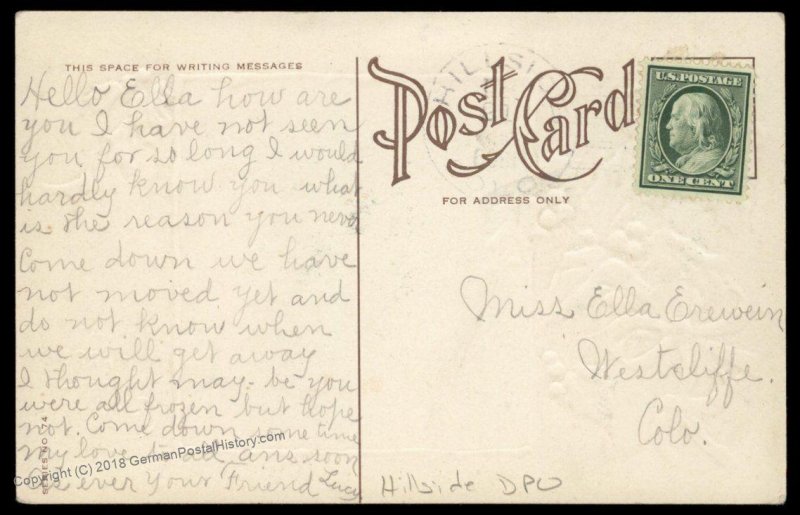 THIS SPACE FOR WRITING MESSAGES
Hello Ella how are
you I have not seen
you for so long I would
hardly know you what
is the reason you never
Come down we have
not moved yet and
do not know when
we will get away
I thought may-be you
were all frozen but hope
not. Come down some time
my love to all ans soon
As ever your Friend Lucy
SERIES NO
Copyright (C) 2018 GermanPostalHistory.com
Post Card
FOR ADDRESS ONLY
U.S. POSTAGE
ONE CENT
Miss Ella Erewein
Westcliffe.
Colo.
Hillside DPO